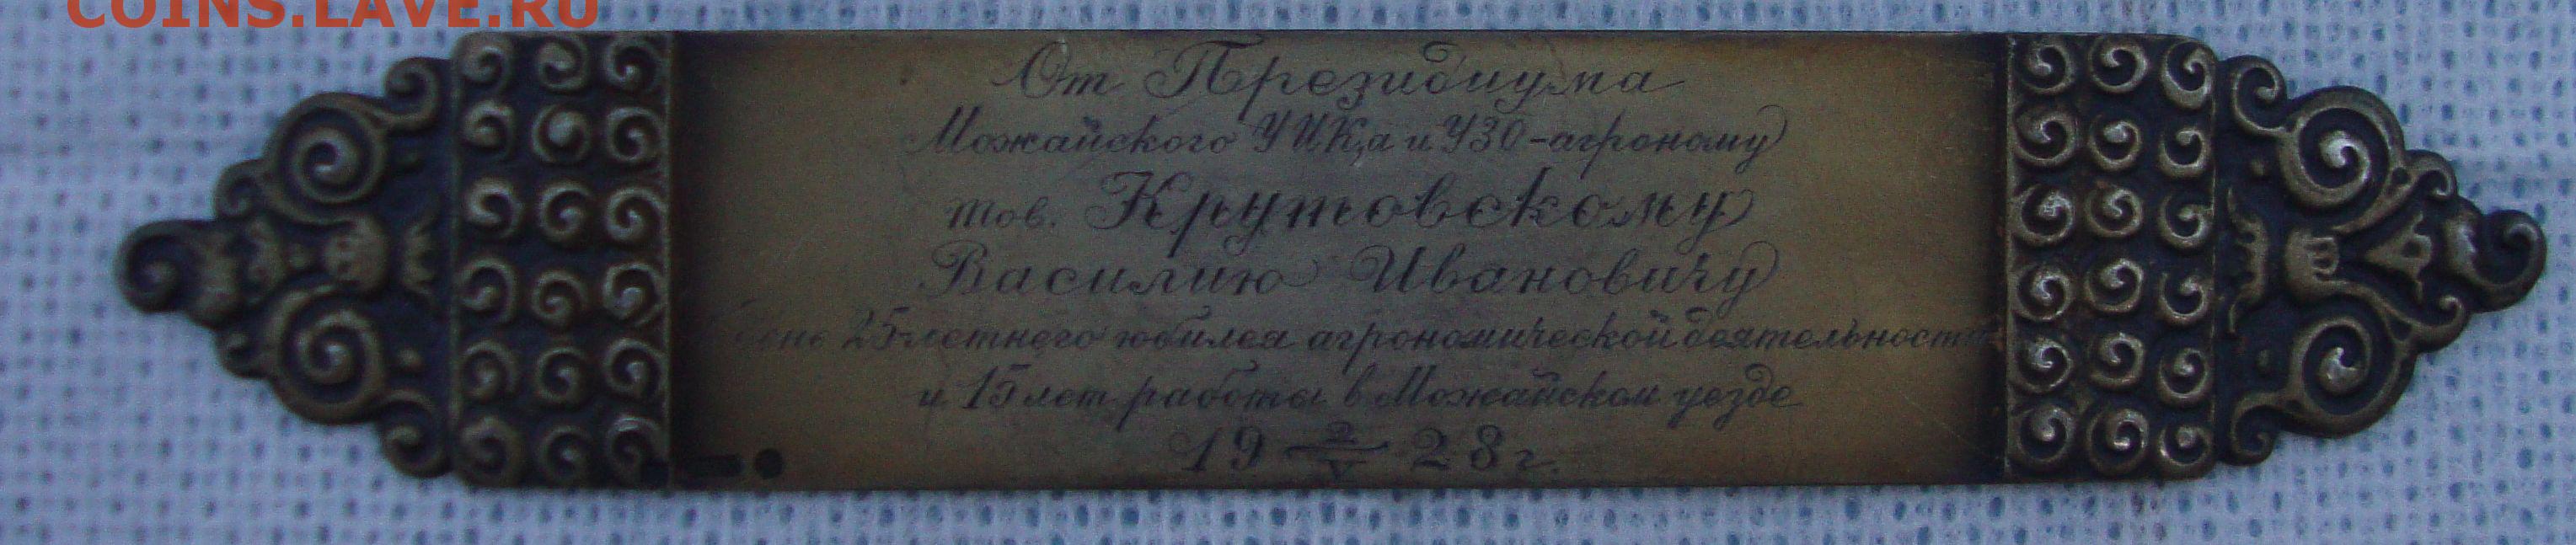 COINS.LAVE.RU
От Президиума
Можайского УИКа и УЗО-агроному
тов. Крутовскому
Василию Ивановичу
день 25-летнего юбилея агрономической деятельности
и 15 лет работы в Можайском уезде
19 2/V 28 г.